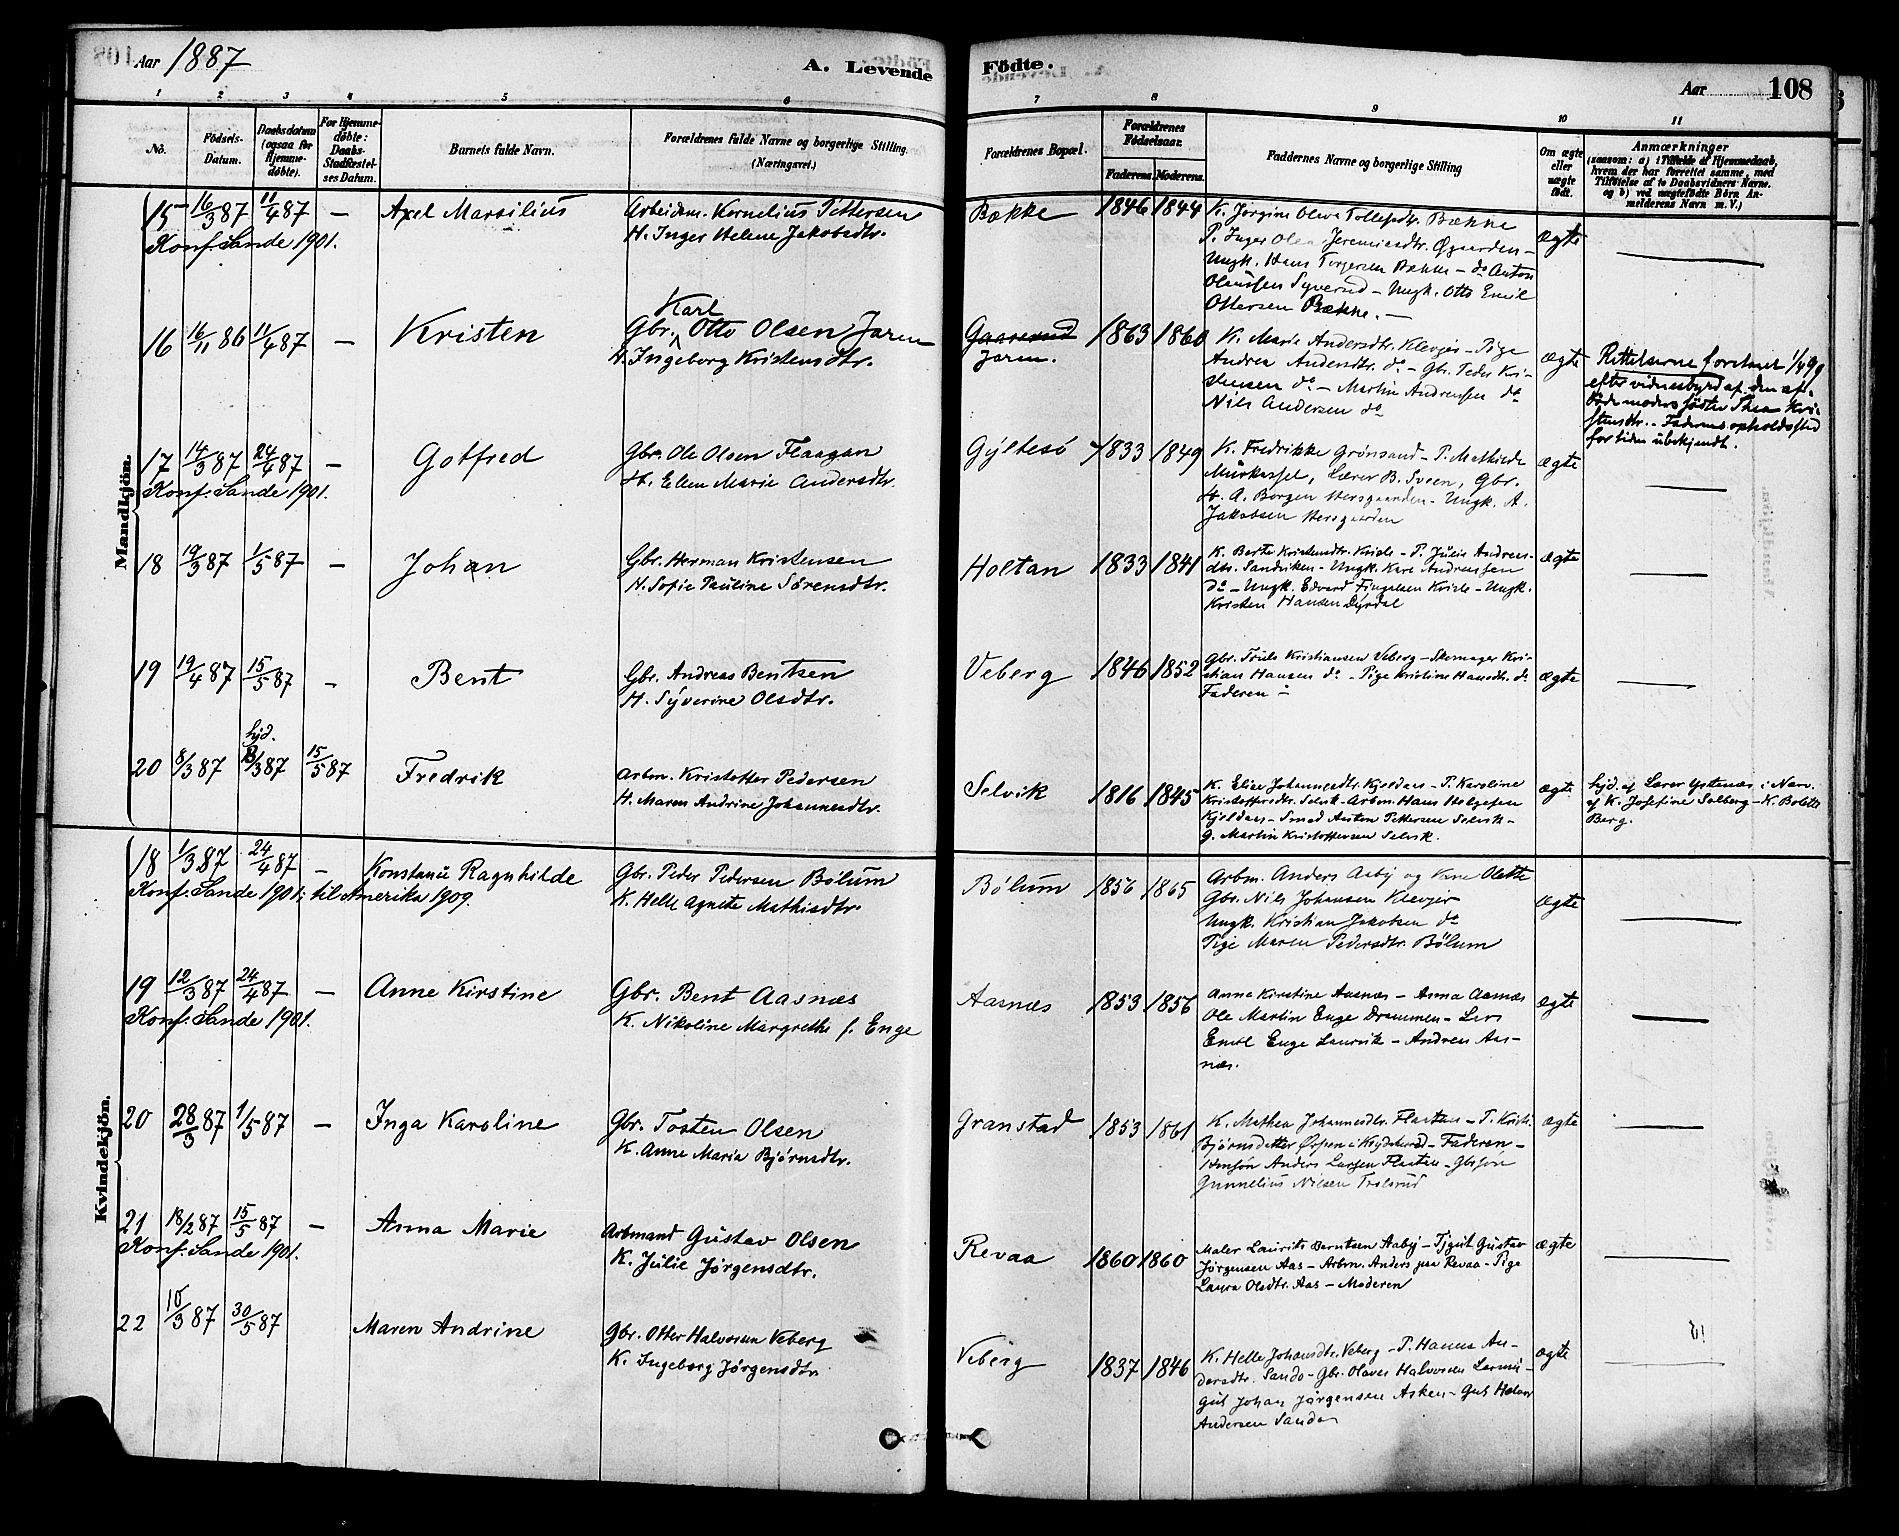 Aar 1887
A. Levende Födte.
Aar 108
1 2 3 4 5 6 7 8 9 10 11
No.
Födsels-Datum.
Daabsdatum (ogsaa for Hjemme-döbte).
For Hjemme-döbte: Daabs-Stadfæstel-ses Datum.
Barnets fulde Navn.
Forældrenes fulde Navne og borgerlige Stilling. (Næringsvei.)
Forældrenes Bopæl.
Forældrenes Födselsaar.
Faderens. Moderens.
Faddernes Navne og borgerlige Stilling
Om ægte eller uægte födt.
Anmærkninger
(saasom: a) i Tilfælde af Hjemmedaab, hvem der har forrettet samme, med Tilföielse af to Daabsvidners Navne. og b) ved uægtefödte Börn Anmelderens Navn m. V.)
Mandkjön.
15 16/3 87 11/4 87 — Axel Marsilius
Arbeidsm. Kornelius Pettersen
H. Inger Helene Jakobsdtr.
Bække 1846 1844
K. Jørgine Olava Tollefsdtr. Bække
P. Inger Olea Jeremiasdtr. Øgaarden —
Ungk. Hans Torgersen Bække — do Anton
Olaussen Syverud — Ungk. Otto Emil
Ottersen Bække. —
ægte —
Konf. Sande 1901.
16 16/11 86 11/4 87 — Kristen
Karl
Gbr. Otto Olsen Jaren
H. Ingeborg Kristensdtr.
Gaaserud
Jaren. 1863 1860
K. Marie Andersdtr. Klevjer — Pige
Andrea Andersdtr. do — Gbr. Peder Kri-
stensen do — Martin Andreassen do
Nils Andersen do
ægte
Rettelserne foretaget 1/4 99
efter vidnesbyrd af den af-
døde moders søster Thea Kri-
stensdtr. — Faderens opholdssted
for tiden ubekjendt.
17 14/3 87 24/4 87 — Gotfred
Gbr. Ole Olsen Flaagan
H. Ellen Marie Andersdtr.
Gyltesø 1833 1849
K. Fredrikke Grønsand — P. Mathilde
Mürkassel, Lærer B. Sveen, Gbr.
H. A. Borgen Hersgaarden — Ungk. A.
Jakobsen Hersgaarden
ægte —
Konf. Sande 1901.
18 19/3 87 1/5 87 — Johan
Gbr. Herman Kristensen
H. Sofie Pauline Sørensdtr.
Holtan 1833 1841
K. Berte Kristensdtr. — P. Julie Andreas-
dtr. Sandviken — Ungk. Karl Andreassen
do — Ungk. Edvard — Ungk.
Kristen Hansen Dyrdal
ægte —
19 19/4 87 15/5 87 — Bent
Gbr. Andreas Bentsen
H. Syverine Olsdtr.
Veberg 1846 1852
Gbr. Truls Kristiansen Veberg — Skomager Kri-
stian Hansen do — Pige Kristine Hansdtr. do
Faderen —
ægte —
hjd.
20 8/3 87 8/3 87 15/5 87 Fredrik
Arbm. Kristoffer Pedersen
H. Maren Andrine Johannesdtr.
Selvik 1816 1845
K. Elise Johannesdtr. Kjeldaas — P. Karoline
Kristoffersdtr. Selvik — Arbm. Hans Helgesen
Kjeldaas — Smed Anton Pettersen Selvik —
G. Martin Kristoffersen Selvik.
ægte
hjd. af Lærer Ystenæs i Nærv.
af K. Josefine Solberg — K. Bolette
Berg.
Kvindekjön.
18 1/3 87 24/4 87 — Konstanse Ragnhilde
Gbr. Peder Pedersen Bølum
K. Helle Agnete Mathisdtr.
Bølum 1856 1865
Arbm. Anders Aaby og Kone Olette
Gbr. Nils Johansen Klevjer
Ungk. Kristian Jakobsen do
Pige Maren Pedersdtr. Bølum
ægte —
Konf. Sande 1901; til Amerika 1909.
19 12/3 87 24/4 87 — Anne Kirstine
Gbr. Bent Aasnæs
K. Nikoline Margrethe f. Enge
Aasnæs 1853 1856
Anne Kirstine Aasnæs — Anna Aasnæs
Ole Martin Enge Drammen — Lars
Emil Enge Laurvik — Andreas Aas-
næs.
ægte —
Konf. Sande 1901.
20 28/3 87 1/5 87 — Inga Karoline
Gbr. Tosten Olsen
K. Anne Maria Bjørnsdtr.
Granstad 1853 1861
K. Mathea Johannesdtr. Flaaten — P. Kristi.
Bjørnsdatter i Krydsherred — Faderen —
Anders Larsen Flaaten — Gbrsøn
Gunnelius Nilsen Trolsrud
ægte —
21 18/2 87 15/5 87 — Anna Marie
Arbmand Gustav Olsen
K. Julie Jørgensdtr.
Revaa 1860 1860
Maler Laurits Berntsen Aaby — Tjgut Gustav
Jørgensen Aas — Arbm. Anders paa Revaa — Pige
Laura Olsdtr. Aas — Moderen
ægte —
Konf. Sande 1901.
22 10/3 87 30/5 87 Maren Andrine
Gbr. Otter Halvorsen Veberg
K. Ingeborg Jørgensdtr.
Veberg 1837 1846
K. Helle Johansdtr. Veberg — P. Hanna An-
dersdtr. Sando — Gbr. Olaves Halvorsen
Gut Johan Jørgensen Asken — Gut Halvor
Andersen Sande
ægte —